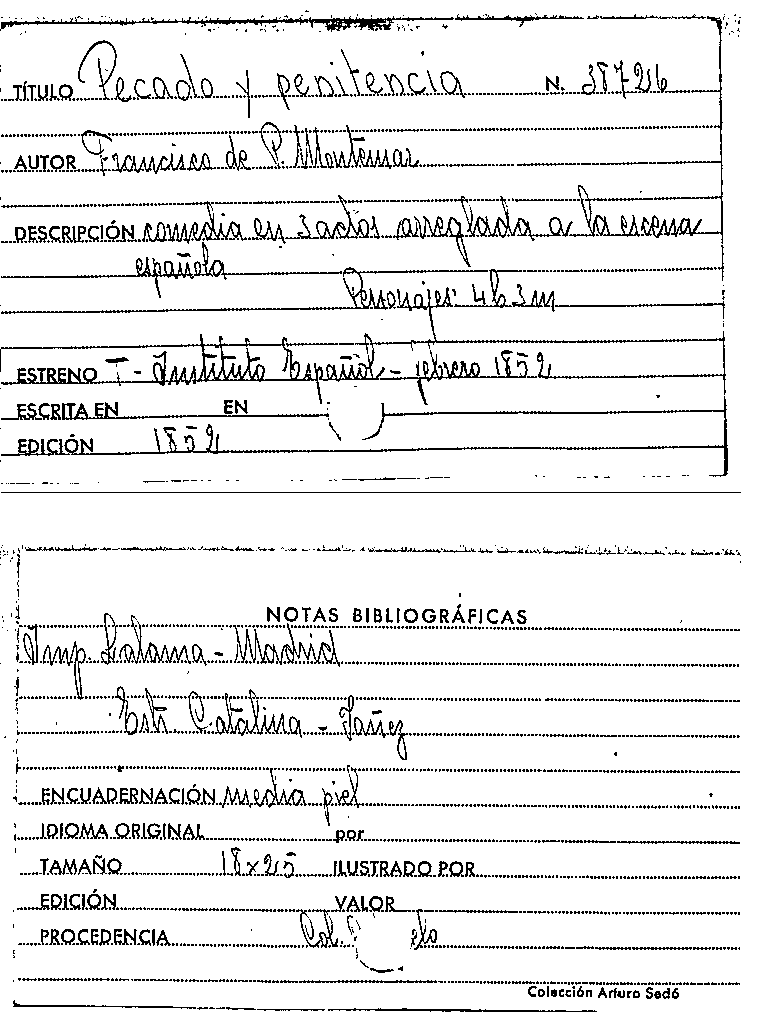 TÍTULO Pecado y penitencia N. 38726
AUTOR Francisco de P. Montemar
DESCRIPCIÓN comedia en 3 actos arreglada a la escena
española
Personajes: 4h 3m
ESTRENO T - Instituto Español - febrero 1852
ESCRITA EN EN
EDICIÓN 1852
NOTAS BIBLIOGRÁFICAS
Imp. Lalama - Madrid
Estr. Catalina - Yañez
ENCUADERNACIÓN media piel
IDIOMA ORIGINAL por
TAMAÑO 18x25 ILUSTRADO POR
EDICIÓN VALOR
PROCEDENCIA Col.
Colección Arturo Sedó